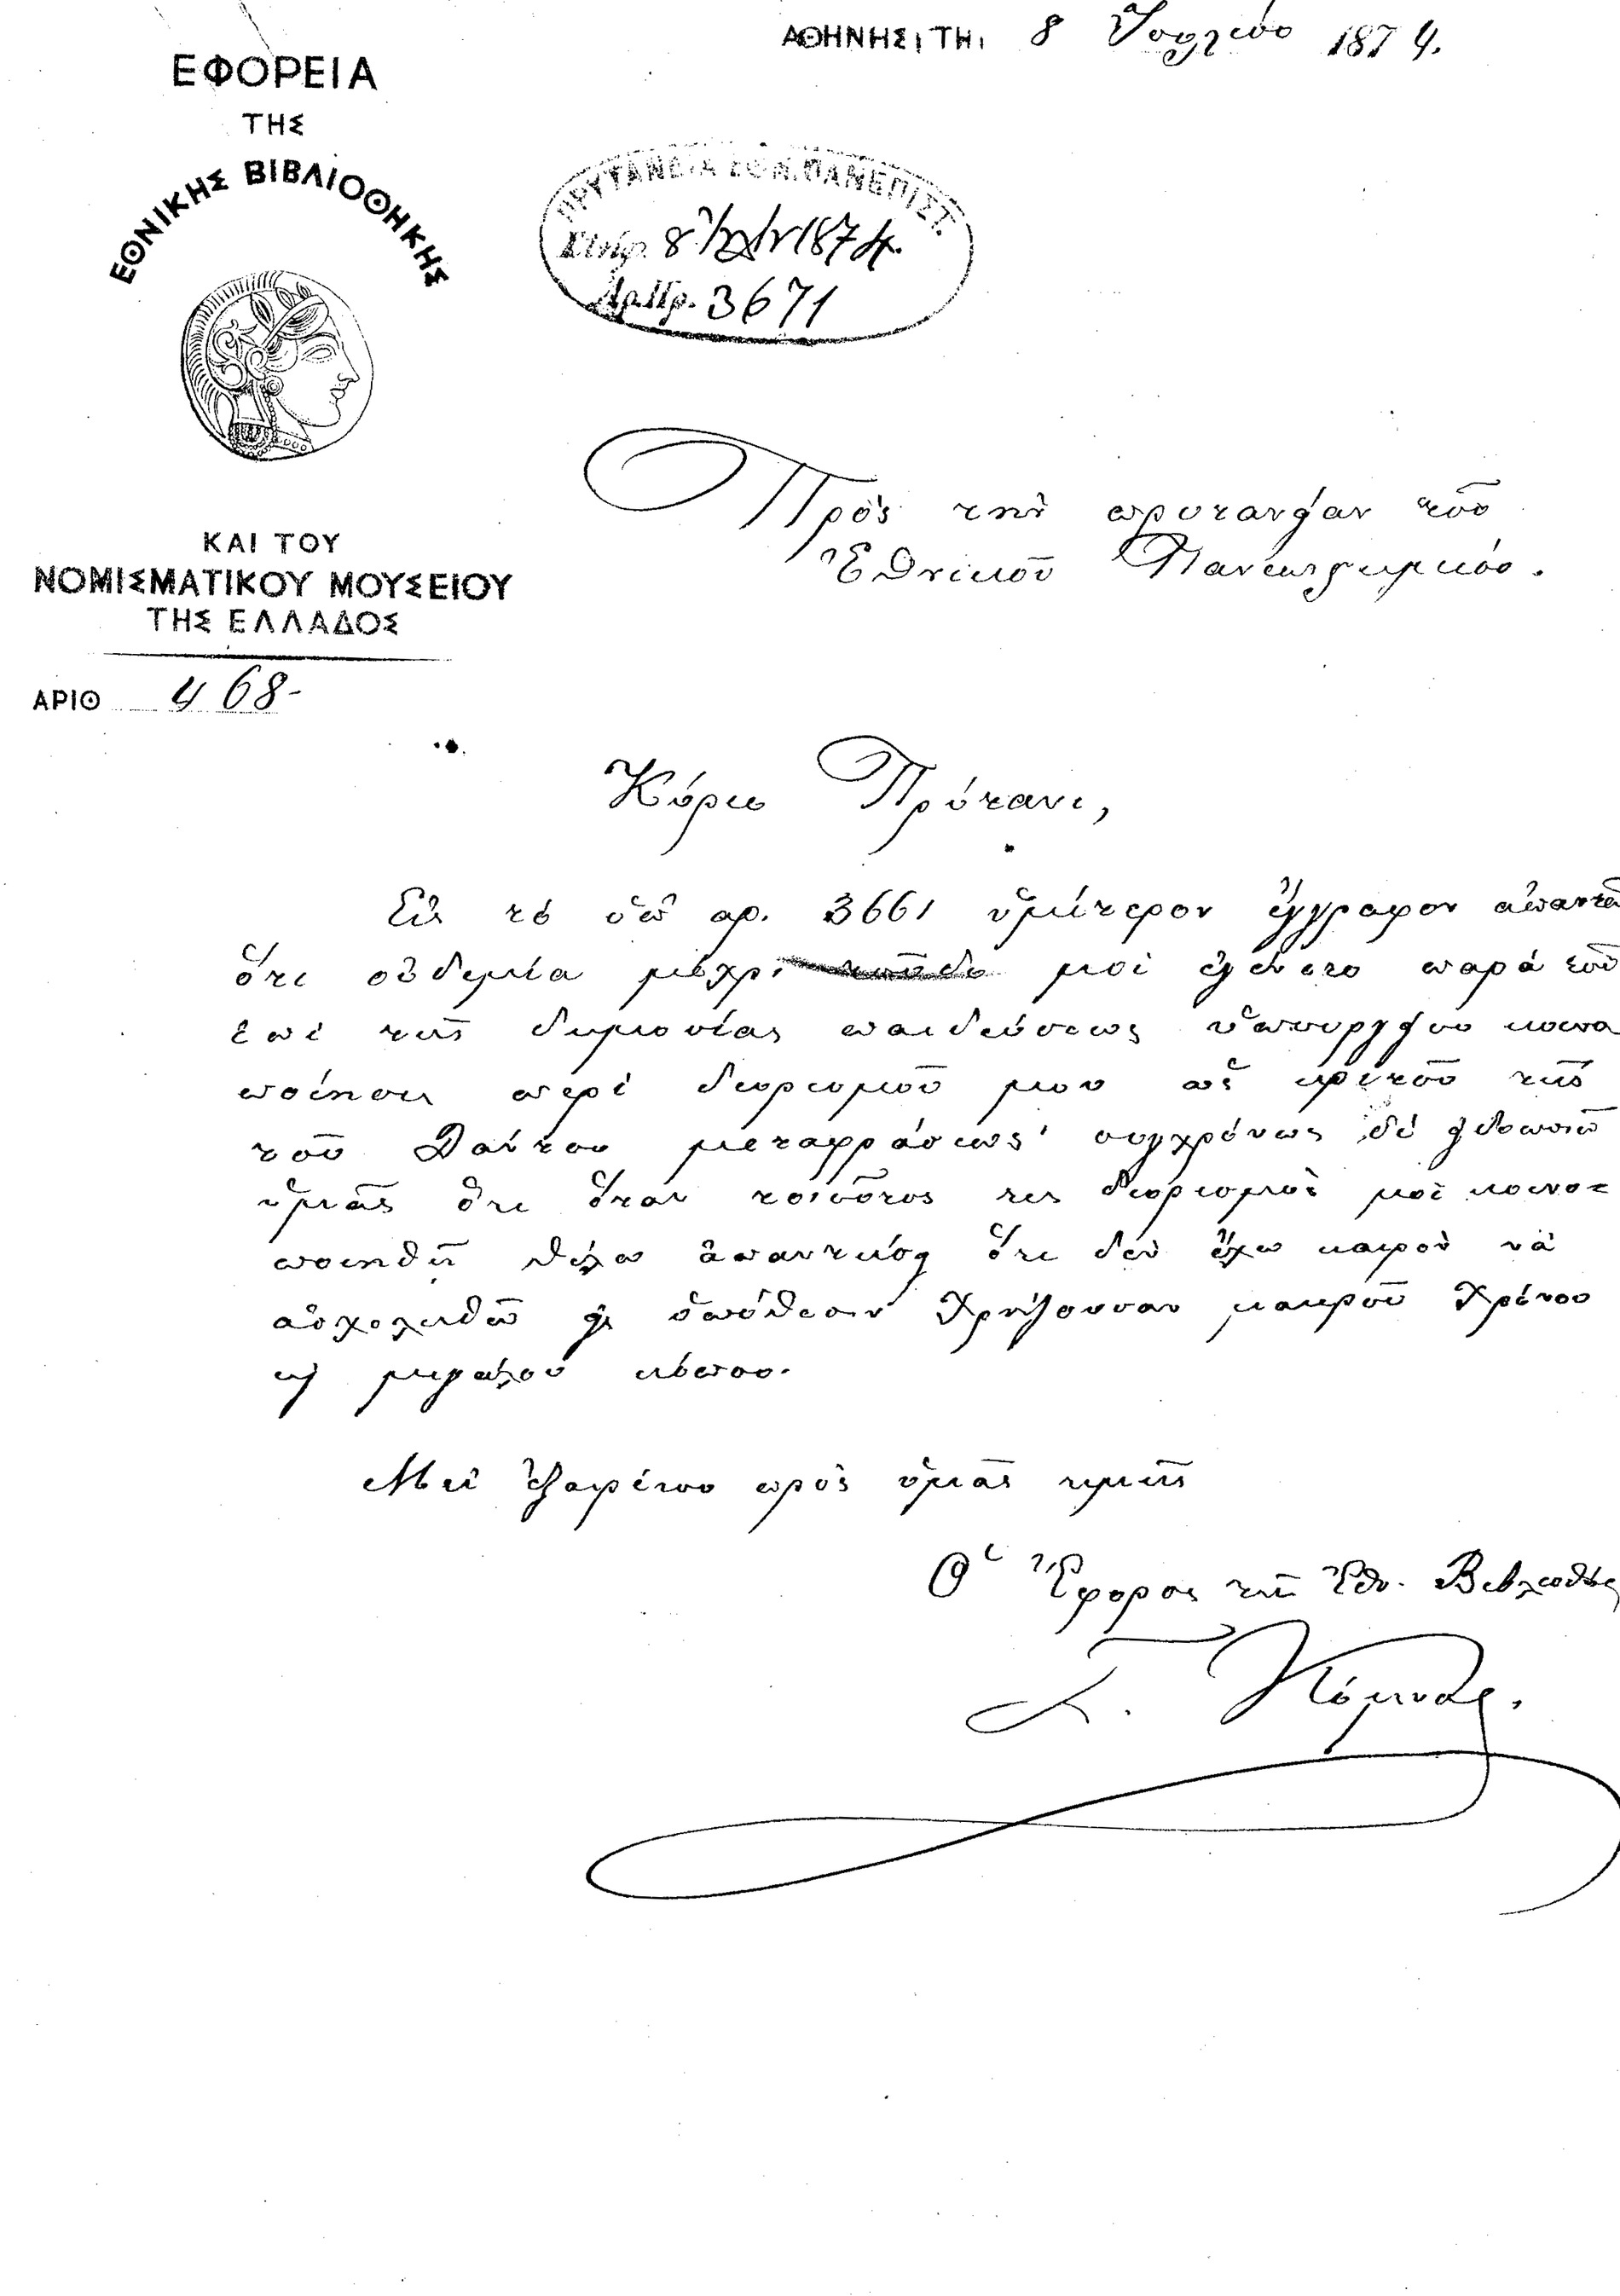 ΑΘΗΝΗΣΙ ΤΗΙ 8 Ἰουλίου 1874.
ΕΦΟΡΕΙΑ
ΤΗΣ
ΕΘΝΙΚΗΣ ΒΙΒΛΙΟΘΗΚΗΣ
ΚΑΙ ΤΟΥ
ΝΟΜΙΣΜΑΤΙΚΟΥ ΜΟΥΣΕΙΟΥ
ΤΗΣ ΕΛΛΑΔΟΣ
ΑΡΙΘ 468-
ΠΡΥΤΑΝΕΙΑ ΕΘΝ. ΠΑΝΕΠΙΣΤ.
8 1874.
Αρ.Πρ. 3671
Πρὸς τὴν πρυτανείαν τοῦ
Ἐθνικοῦ Πανεπιστημίου.
Κύριε Πρύτανι,
Εἰς τὸ ὑπ' ἀρ. 3661 ὑμέτερον ἔγγραφον ἀπαντῶ
ὅτι οὐδεμία μέχρι τοῦδε μοὶ ἐγένετο παρὰ τοῦ
ἐπὶ τῆς δημοσίας παιδεύσεως ὑπουργείου κοινο
ποίησις περὶ διορισμοῦ μου ὡς κριτοῦ τῆς
τοῦ Δάντου μεταφράσεως· συγχρόνως δὲ εἰδοποιῶ
ὑμᾶς ὅτι ὅταν τοιοῦτος τις διορισμὸς μοὶ κοινο-
ποιηθῇ θέλω ἀπαντήσῃ ὅτι δὲν ἔχω καιρὸν νὰ
ἀσχοληθῶ εἰς ὑπόθεσιν χρήζουσαν μακροῦ χρόνου
κ μεγάλου κόπου.
Μετ' ἐξαιρέτου πρὸς ὑμᾶς τιμῆς
Ὁ Ἔφορος τῆς Ἐθν. Βιβλιοθήκης